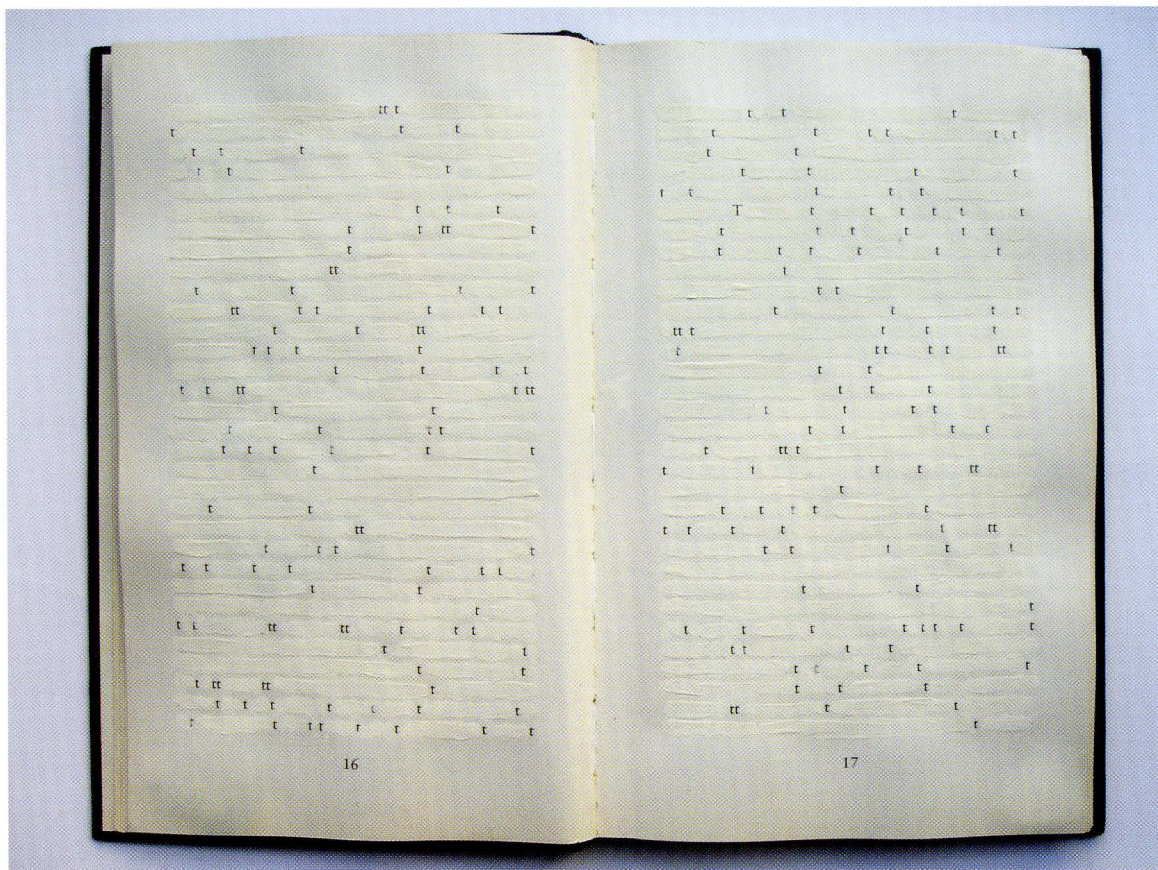 tt t
t t t
t t t
t t t
t t t
t t tt t
t
tt
t t t t
tt t t t t t
t t tt
t t t t
t t t t
t t tt t tt
t t
t t t t
t t t t t t
t
t t
tt
t t t t
t t t t t t t
t t
t
t t tt tt t t t
t t
t t
t tt tt t
t t t t t t t
t t t t t t t t
16
t t t
t t t t t t
t t
t t t t
t t t t t
T t t t t t t
t t t t t t
t t t t t t
t
t t
t t t t
tt t t t t
t t t t t tt
t t
t t t
t t t t
t t t t
t tt t
t t t t tt
t
t t t t t
t t t t t tt
t t t t t
t t
t
t t t t t t t t
t t t t
t t t t t
t t t
tt t t
t
17